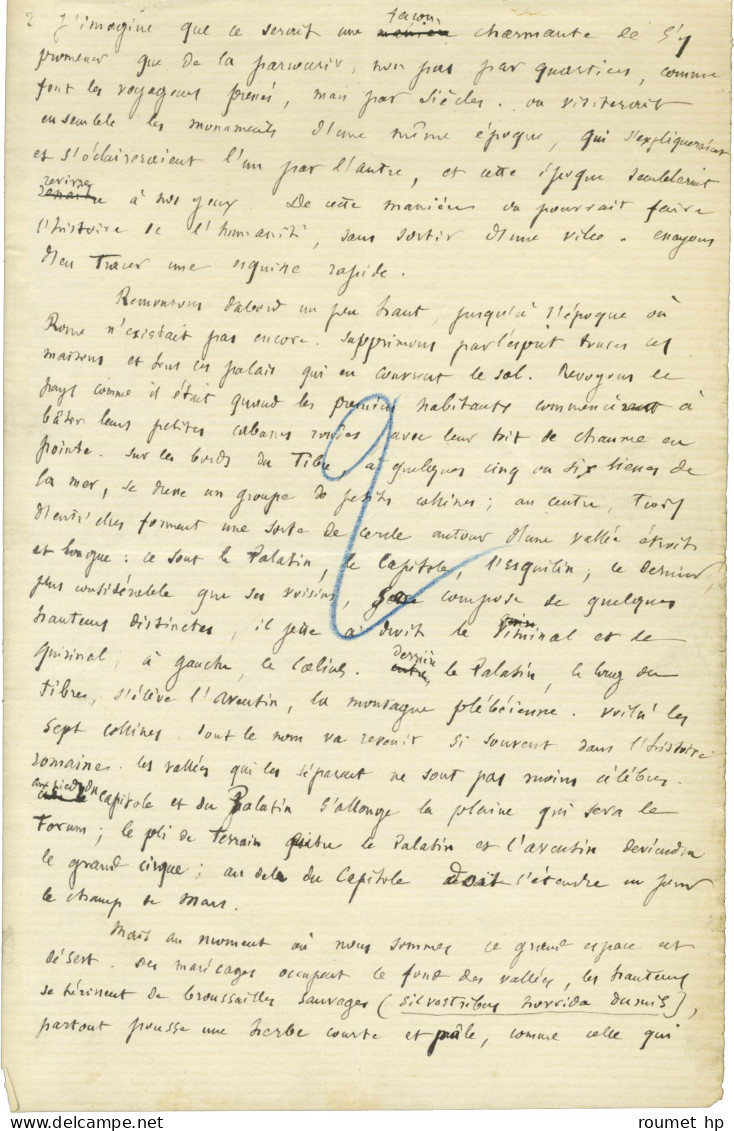 2 J'imagine que ce serait une façon charmante de s'y
promener que de la parcourir, non pas par quartiers, comme
font les voyageurs pressés, mais par siècles. on visiterait
ensemble les monuments d'une même époque, qui s'expliqueraient
et s'éclaireraient l'un par l'autre, et cette époque semblerait
revivre à nos yeux. De cette manière on pourrait faire
l'histoire de l'humanité, sans sortir d'une ville. essayons
d'en tracer une esquisse rapide.
Remontons d'abord un peu haut, jusqu'à l'époque où
Rome n'existait pas encore. Supprimons par l'esprit toutes ces
maisons et tous ces palais qui en couvrent le sol. Revoyons le
pays comme il était quand les premiers habitants commencèrent à
bâtir leurs petites cabanes rondes avec leur toit de chaume en
pointe. Sur les bords du Tibre, à quelques cinq ou six lieues de
la mer, se dresse un groupe de petites collines ; au centre, trois
d'entr'elles forment une sorte de cercle autour d'une vallée étroite
et longue : ce sont le Palatin, le Capitole, l'Esquilin ; ce dernier,
plus considérable que ses voisins, se compose de quelques
hauteurs distinctes, il jette à droite le Viminal et le
Quirinal, à gauche, le Cœlius. derrière le Palatin, le long du
Tibre, s'élève l'Aventin, la montagne plébéienne. voilà les
sept collines dont le nom va revenir si souvent dans l'histoire
romaine. les vallées qui les séparent ne sont pas moins célèbres.
aux pieds du Capitole et du Palatin s'allonge la plaine qui sera le
Forum ; le pli de terrain entre le Palatin et l'Aventin deviendra
le grand cirque ; au delà du Capitole doit s'étendre un jour
le champ de Mars.
Mais au moment où nous sommes ce grand espace est
désert. Des marécages occupent le fond des vallées, les hauteurs
se hérissent de broussailles sauvages (silvestribus horrida dumis),
partout pousse une herbe courte et pâle, comme celle qui
roumet hp